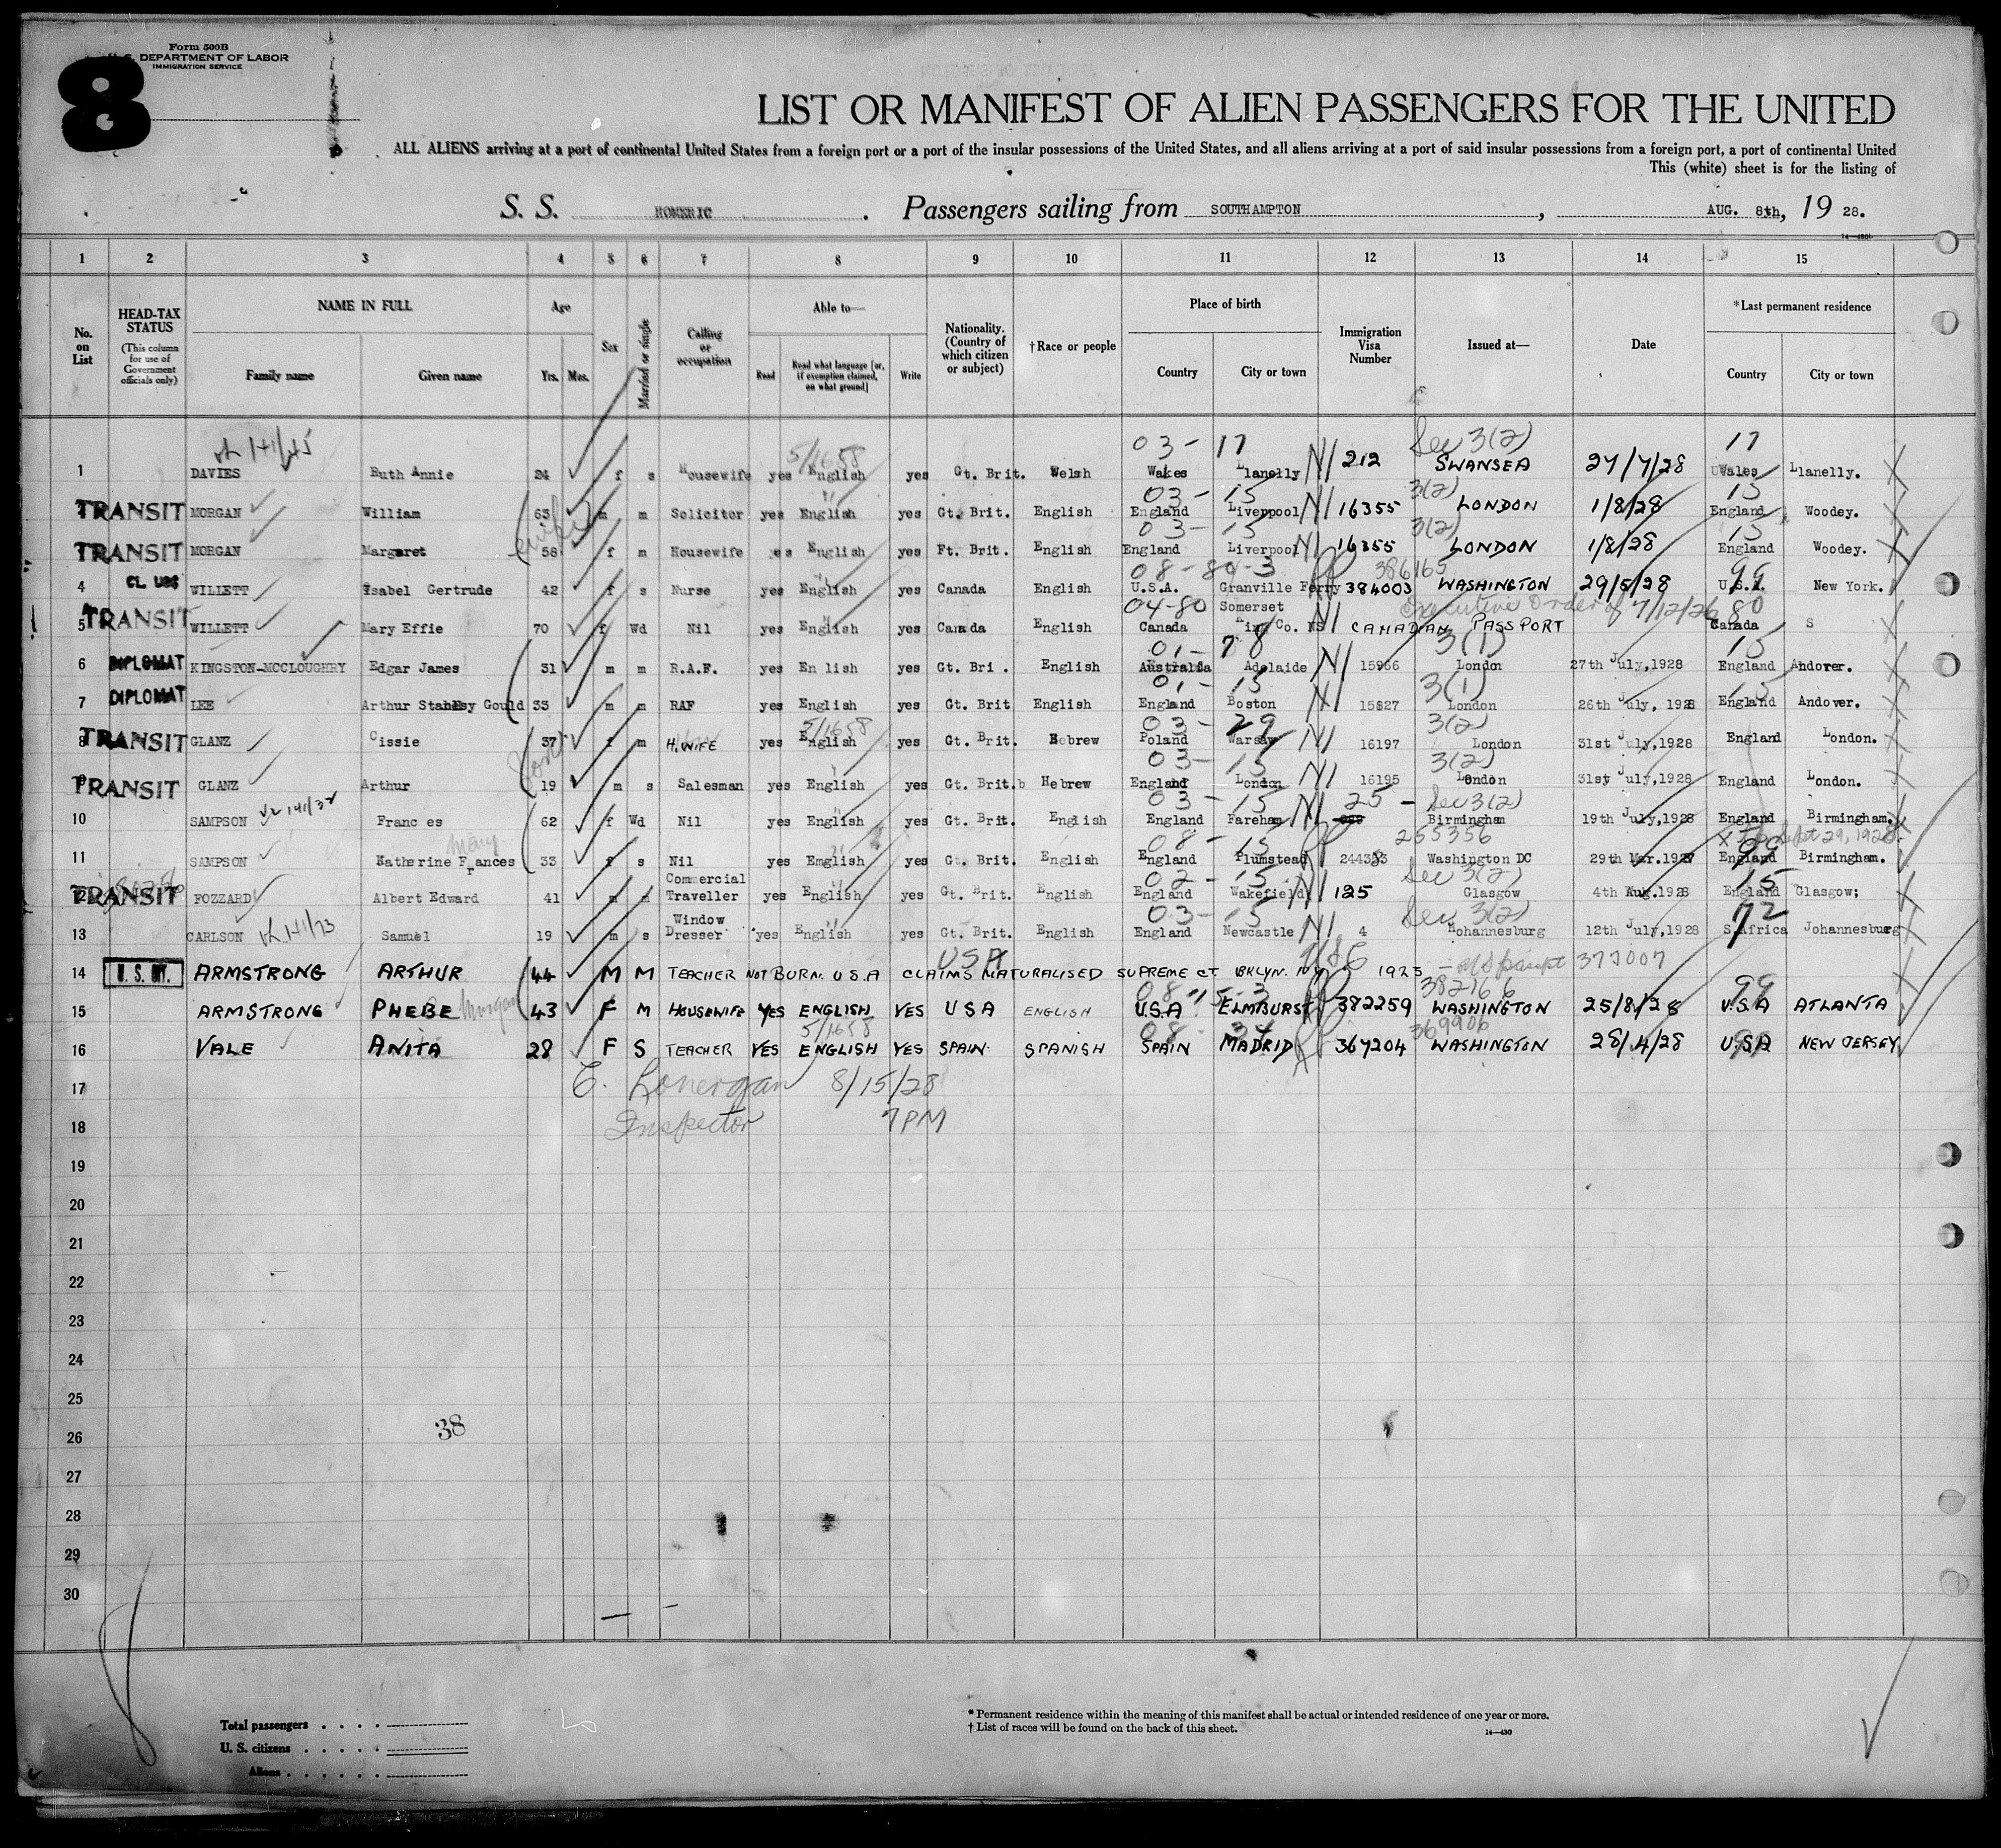 Form 500B
U. S. DEPARTMENT OF LABOR
IMMIGRATION SERVICE
8
LIST OR MANIFEST OF ALIEN PASSENGERS FOR THE UNITED
ALL ALIENS arriving at a port of continental United States from a foreign port or a port of the insular possessions of the United States, and all aliens arriving at a port of said insular possessions from a foreign port, a port of continental United
This (white) sheet is for the listing of
S. S. HOMERIC. Passengers sailing from SOUTHAMPTON, AUG. 8th, 19 28.
14—430b
1 2 3 4 5 6 7 8 9 10 11 12 13 14 15
No. on List
HEAD-TAX STATUS (This column for use of Government officials only)
NAME IN FULL
Family name Given name
Age
Yrs. Mos.
Sex
Married or single
Calling or occupation
Able to—
Read Read what language [or, if exemption claimed, on what ground] Write
Nationality. (Country of which citizen or subject)
†Race or people
Place of birth
Country City or town
Immigration Visa Number
Issued at—
Date
*Last permanent residence
Country City or town
141/45 5/1658 03- 17 Sec 3(2) 17
1 DAVIES Ruth Annie 24 f s Housewife yes English yes Gt. Brit. Welsh Wales Llanelly NI 212 SWANSEA 27/7/28 Wales Llanelly.
03- 15 3(2) 15
2 TRANSIT MORGAN William 63 m m Solicitor yes English yes Gt. Brit. English England Liverpool NI 16355 LONDON 1/8/28 England Woodey.
03- 15 3(2) 15
3 TRANSIT MORGAN Margaret 58 f m Housewife yes English yes Ft. Brit. English England Liverpool NI 16355 LONDON 1/8/28 England Woodey.
08-80-3 386165 99
4 WILLETT Isabel Gertrude 42 f s Nurse yes English yes Canada English U.S.A. Granville Ferry 384003 WASHINGTON 29/5/28 U.S.A. New York.
04-80 Somerset Executive Order of 7/12/26 80
5 TRANSIT WILLETT Mary Effie 70 f Wd Nil yes English yes Canada English Canada King Co. NS NI CANADIAN PASSPORT Canada S
01- 78 3(1) 15
6 DIPLOMAT KINGSTON-MCCLOUGHRY Edgar James 31 m m R.A.F. yes En lish yes Gt. Bri . English Australia Adelaide NI 15966 London 27th July,1928 England Andover.
01- 15 3(1) 15
7 DIPLOMAT LEE Arthur Stanley Gould 33 m m RAF yes English yes Gt. Brit English England Boston NI 15827 London 26th July, 1928 England Andover.
5/1658 03- 29 3(2)
8 TRANSIT GLANZ Cissie 37 f m H.WIFE yes English yes Gt. Brit. Hebrew Poland Warsaw NI 16197 London 31st July,1928 England London.
03- 15 3(2)
9 TRANSIT GLANZ Arthur 19 m s Salesman yes English yes Gt. Brit.b Hebrew England London NI 16195 London 31st July,1928 England London.
03- 15 25 - Sec 3(2)
10 SAMPSON Frances 62 f Wd Nil yes English yes Gt. Brit. English England Fareham NI Birmingham 19th July,1928 England Birmingham.
Mary 08- 15 255356 Sept 29, 1928. 99
11 SAMPSON Katherine Frances 33 f s Nil yes Emglish yes Gt. Brit. English England Plumstead Washington DC 29th Mar.1927 England Birmingham.
02- 15 Sec 3(2) 15
12 TRANSIT FOZZARD Albert Edward 41 m m Commercial Traveller yes English yes Gt. Brit. English England Wakefield NI 125 Glasgow 4th Aug.1928 England Glasgow;
141/73 03- 15 Sec 3(2) 72
13 CARLSON Samuel 19 m s Window Dresser yes English yes Gt. Brit. English England Newcastle NI 4 Johannesburg 12th July,1928 S.Africa Johannesburg
USA USC
14 ARMSTRONG ARTHUR 44 M M TEACHER NOT BORN. U.S.A CLAIMS NATURALISED SUPREME CT BKLYN. NY 1925 - US passpt 373007
08-15-3 382166 99
15 ARMSTRONG PHEBE Morgan 43 F M HOUSEWIFE YES ENGLISH YES USA ENGLISH U.S.A ELMHURST 382259 WASHINGTON 25/8/28 U.S.A ATLANTA
5/1658 08- 34 369906 99
16 VALE ANITA 28 F S TEACHER YES ENGLISH YES SPAIN. SPANISH SPAIN MADRID 367204 WASHINGTON 28/4/28 U.S.A NEW JERSEY.
17 C. Lonergan 8/15/28
18 Inspector 7PM
19
20
21
22
23
24
25
38
26
27
28
29
30
Total passengers
U. S. citizens
Aliens
* Permanent residence within the meaning of this manifest shall be actual or intended residence of one year or more.
† List of races will be found on the back of this sheet.
14—430